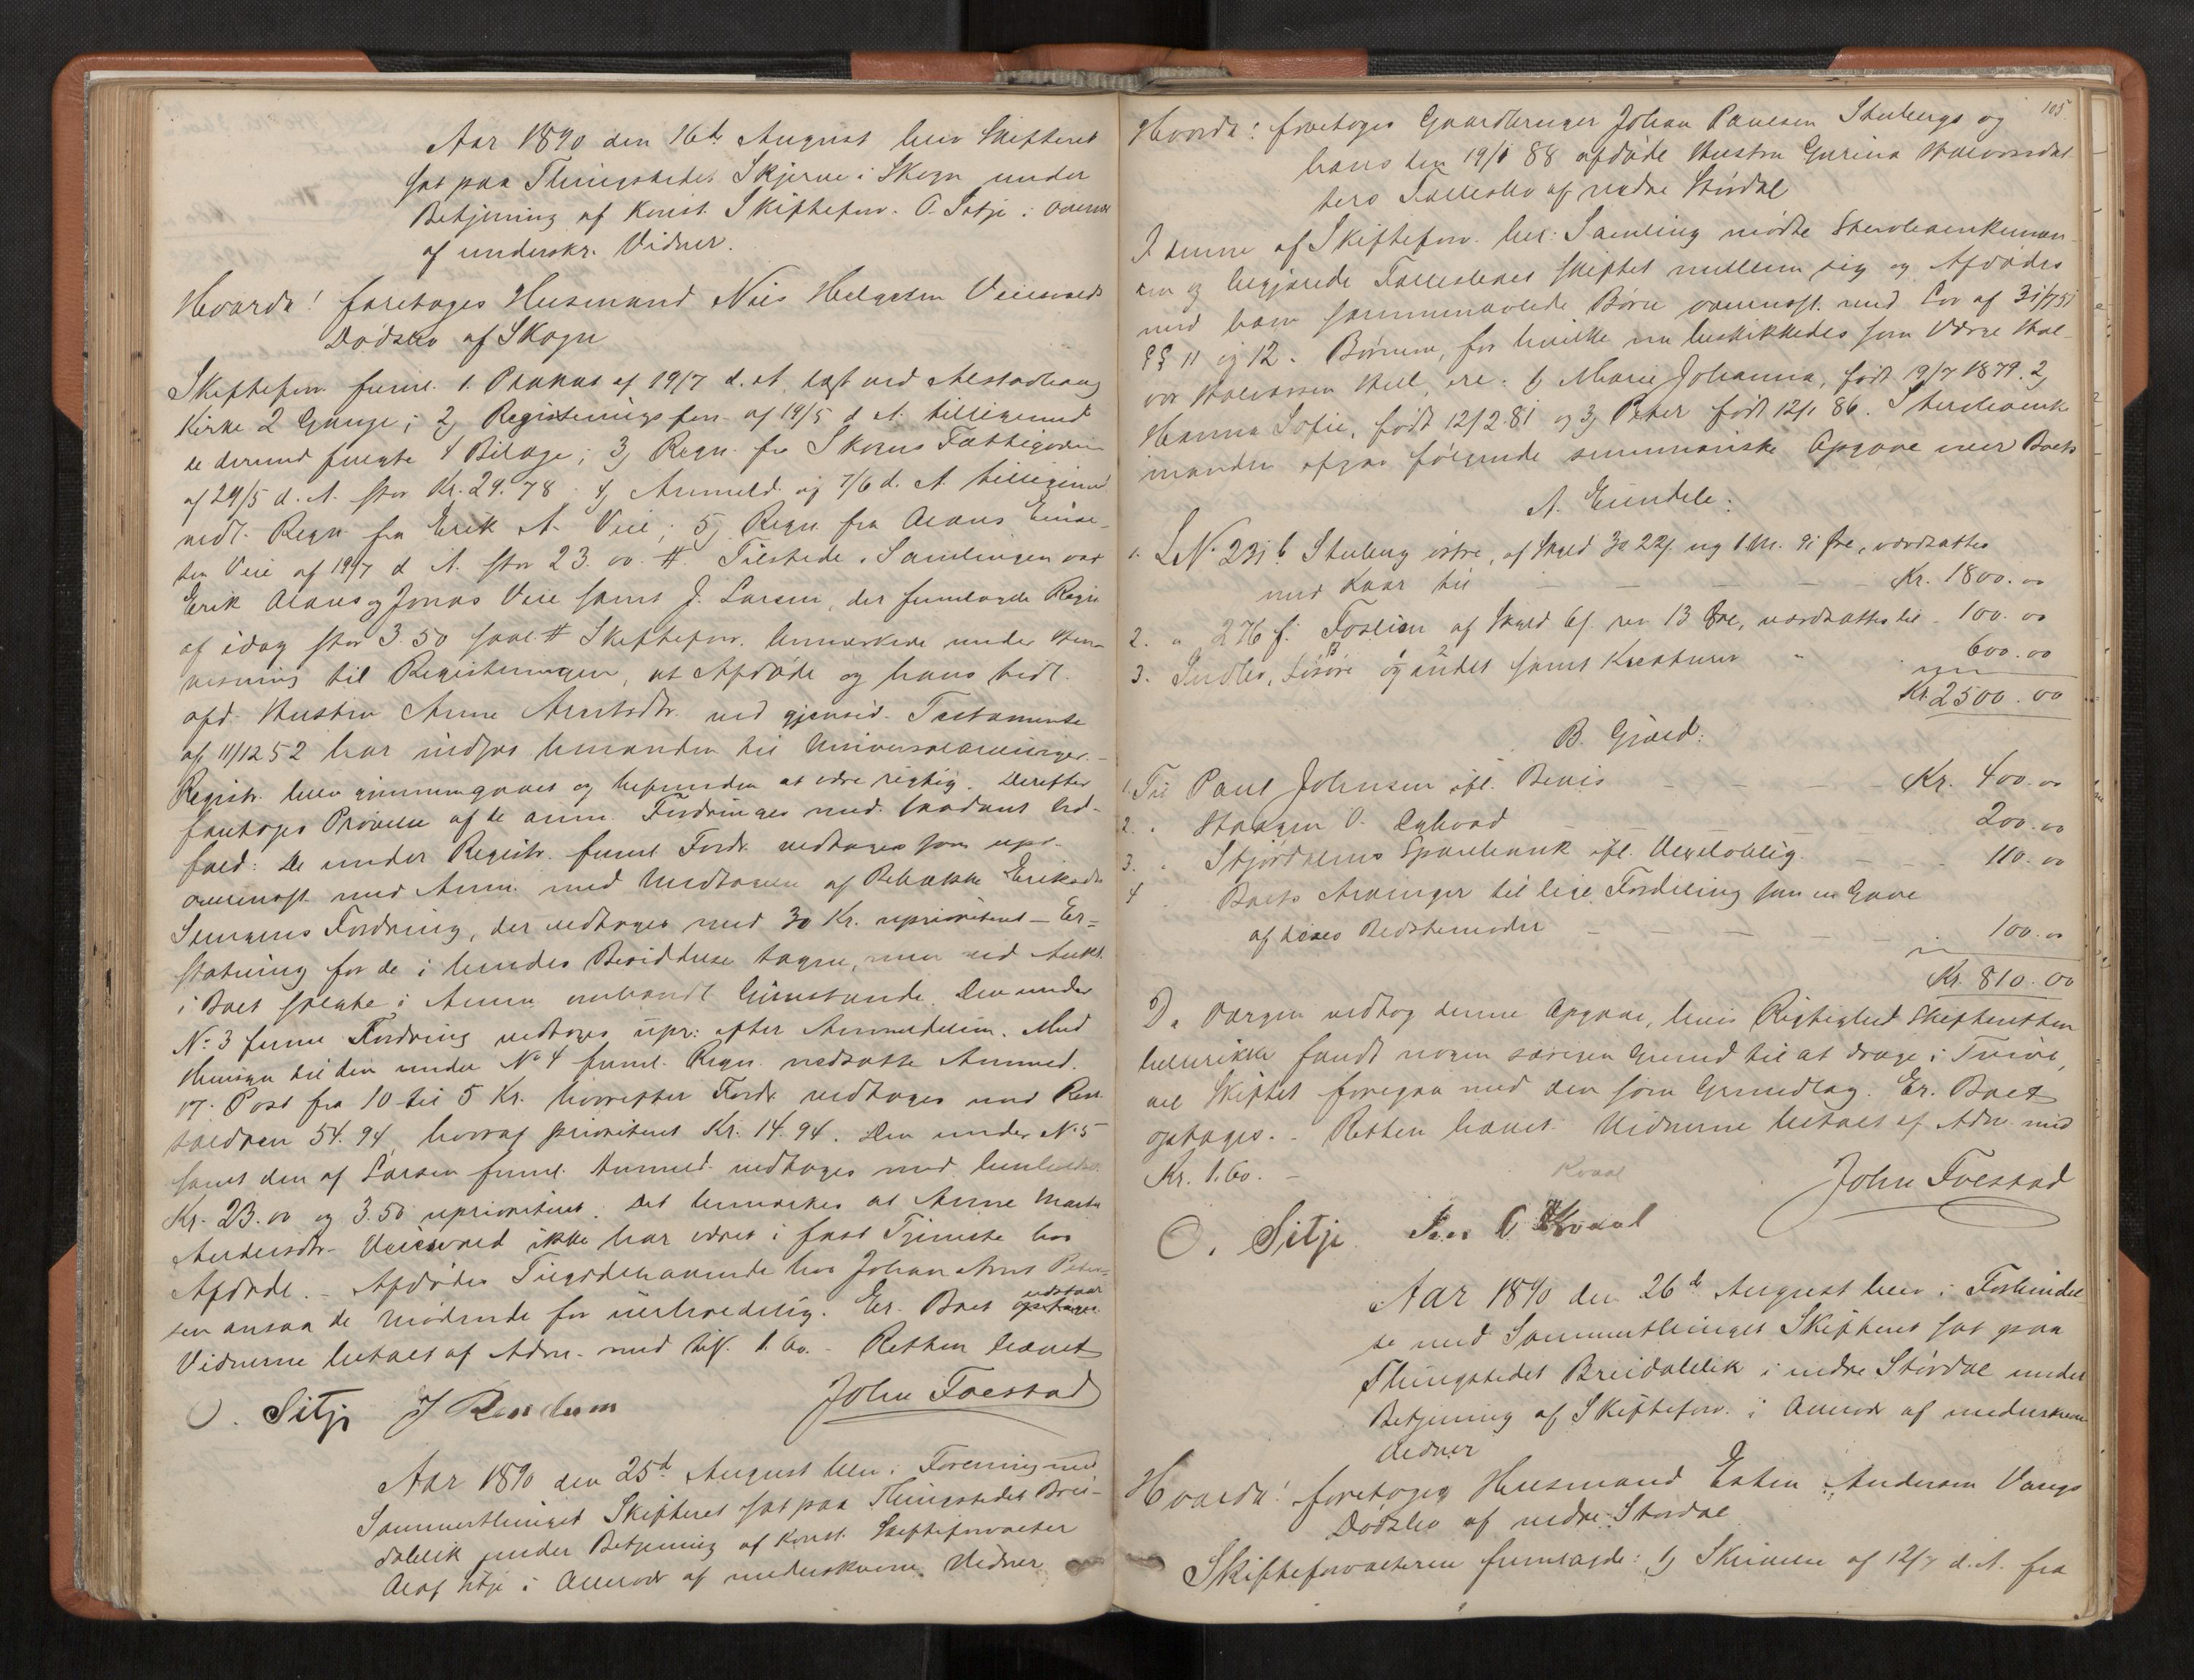 Aar 1890 den 16de August blev Skifteret
sat paa Thingstedet Skjerve i Skogn under
Betjening af Konst. Skifteforv. O. Sitje i Overvær
af underskr. Vidner.
Hvorda! foretoges Husmand Nils Helgesen Veiesvalds
Dødsbo af Skogn
Skifteforv. freml. 1. Plakat af 19/7 d. A. læst ved Alstadhaug
Kirke 2 Gange; 2, Registreringsforr. af 19/5 d. A. tilligemed
de dermed fulgte 4 Bilage; 3, Regn. fra Skogns Fattigvæsen
af 29/5 d. A. stor Kr. 29.78. 4, Anmeld. af 7/6 d. A. tilligemed
vedl. Regn. fra Erik A. Veie; 5, Regn. fra Olaus Einar-
sen Veie af 19/7 d. A. stor 23.00. # Tilstede i Samlingen var
Erik Olaus og Jonas Veie samt J. Larsen, der fremlagde Regn.
af idag stor 3.50 saal. # Skifteforv. bemærkede under Hen-
visning til Registreringen, at Afdøde og hans tidl.
afd. Hustru Anne Arntsdtr. ved gjensid. Testamente
af 11/12 52 har indsat hinanden til Universalarvinger.
Registr. blev gjennemgaaet og befunden at være rigtig. Derefter
foretoges Prøvelse af de anm. Fordringer med saadant Ud-
fald: De under Registr. freml. Fordr. vedtages som upr.
overensst. med Anm. med Undtagelse af Rebekka Eriksdtr.
Fordring, der vedtages med 30 Kr. uprioriteret – Er-
statning for de i hendes Besiddelse tagne, men ved Aukt.
i Boet solgte i Anm. omhandl. Gjenstande. Den under
No 3 fremml. Fordring vedtages upr: efter Anmeldelsen. Med
Hensyn til den under No 4 freml. Regn. nedsatte Anmeld.
17. Post fra 10 til 5 Kr. hvorefter Fordr. vedtages med Rest-
saldoen 54.94, hvoraf prioriteret Kr. 14.94. Den under No 5
samt den af Larsen freml. Anmeld. vedtages med henholdsv.
Kr. 23.00 og 3.50 uprioriteret. Det bemærkes at Anne Marta
Andersdtr. Veiesvald ikke har været i fast Tjeneste hos
Afdøde. – Afdødes Tilgodehavende hos Johan Arnt Peter-
sen ansaa de Mødende for uerholdelig. Er. Boet optages udstaar
Vidnerne betalt af Adm. med tils. 1.60. – Retten hævet
O. Sitje J Rendum John Foestad
Aar 1890 den 25de August blev i Forening med
Sommerthinget Skifteret sat paa Thingstedet Brei-
dablik under Betjening af Konst. Skifteforvalter
Olaf Sitje i Overvær af underskrevne Vidner
105
Hvorda: foretoges Gaardbruger Johan Paulsen Stubergs og
hans den 19/1 88 afdøde Hustru Gurina Halvorsdat-
ters Fællesbo af nedre Størdal
I denne af Skifteforv. ber: Samling mødte Sterboenkeman-
den og begjærede Fællesboet skiftet mellem sig og Afdødes
med ham sammenavlede Børn overensst. med Lov af 31/7 51
§§ 11 og 12. Børnene, for hvilke nu beskikkedes som Værge Hal-
vor Halvorsen Hell, ere: 1, Marie Johanna, født 19/7 1879. 2,
Hanna Sofie, født 12/2 81 og 3, Peter født 12/1 86. Sterboenke-
manden afgav følgende summariske Opgave over Boets
A. Eiendele:
1. LNo 231 b Stuberg østre, af Skyld 3 22 ny 1 M. 91 Øre, værdsattes
med Kaar til – – – – Kr. 1800.00
2. " 276 f. Foslien af Skyld 6 f. rev. 13 Øre, værdsattes til – 100.00
3. Indbo, Løsøre og andet samt Kreaturer " 600.00
Kr. 2500.00
B. Gjæld:
1. Til Paul Johnsen ifl. Bevis – – – Kr. 400.00
2. " Haagen O. – – 200.00
3. " Stjørdalens Sparebank ifl. Vexeloblig. – – 110.00
4 . Boets Arvinger til lige Fordeling som en Gave
af disses Bedstemoder – – – – 100.00
Kr. 810.00
Da Værgen vedtog denne Opgave, hvis Rigtighed Skifteretten
hellerikke fandt nogen særegen Grund til at drage i Tvivl,
vil Skiftet foregaa med den som Grundlag. Er. Boet
optages. – Retten hævet. Vidnerne betalt af Adm. med
Kr. 1.60. –
Kvaal
John Foestad
O. Sitje O Kvaal
Aar 1890 den 26de August blev i Forbindel-
se med Sommerthinget Skifteret sat paa
Thingstedet Breidablik i nedre Størdal under
Betjening af Skifteforv. i Overvær af underskrevne
Vidner
Hvorda! foretoges Husmand Esten Andersen Vangs
Dødsbo af nedre Stordal
Skifteforvalteren fremlagde: 1, Skrivelse af 12/7 d. A. fra